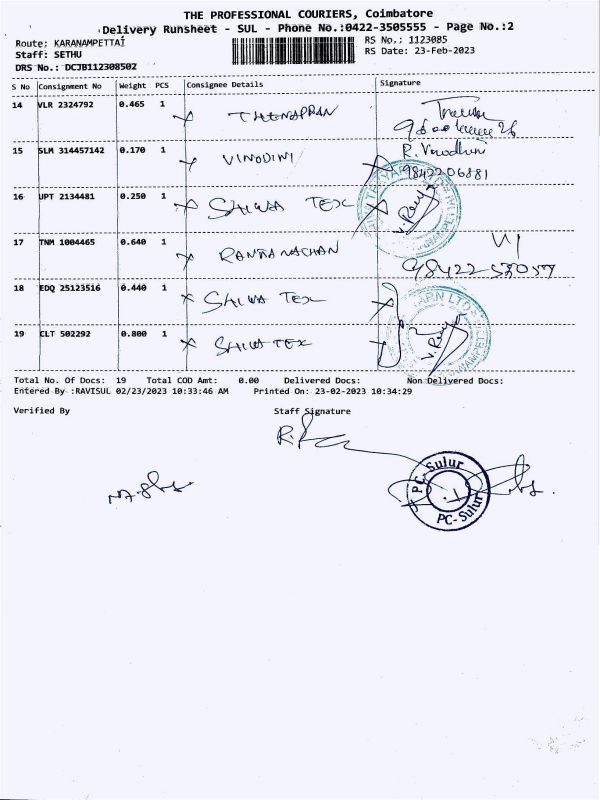 THE PROFESSIONAL COURIERS, Coimbatore
Delivery Runsheet - SUL - Phone No.:0422-3505555 - Page No.:2
Route: KARANAMPETTAI
RS No.: 1123085
Staff: SETHU
RS Date: 23-Feb-2023
DRS No.: DCJB112308502
S No Consignment No Weight PCS Consignee Details Signature
14 VLR 2324792 0.465 1
15 SLM 314457142 0.170 1 VINODINI R. Vinodhini
9842206881
16 UPT 2134481 0.250 1 SHIWA TEX
17 TNM 1004465 0.640 1
18 EDQ 25123516 0.440 1 SHIWA TEX
19 CLT 502292 0.800 1 SHIWA TEX
Total No. Of Docs: 19 Total COD Amt: 0.00 Delivered Docs: Non Delivered Docs:
Entered By :RAVISUL 02/23/2023 10:33:46 AM Printed On: 23-02-2023 10:34:29
Verified By Staff Signature
PC-Sulur
PC-Sulur